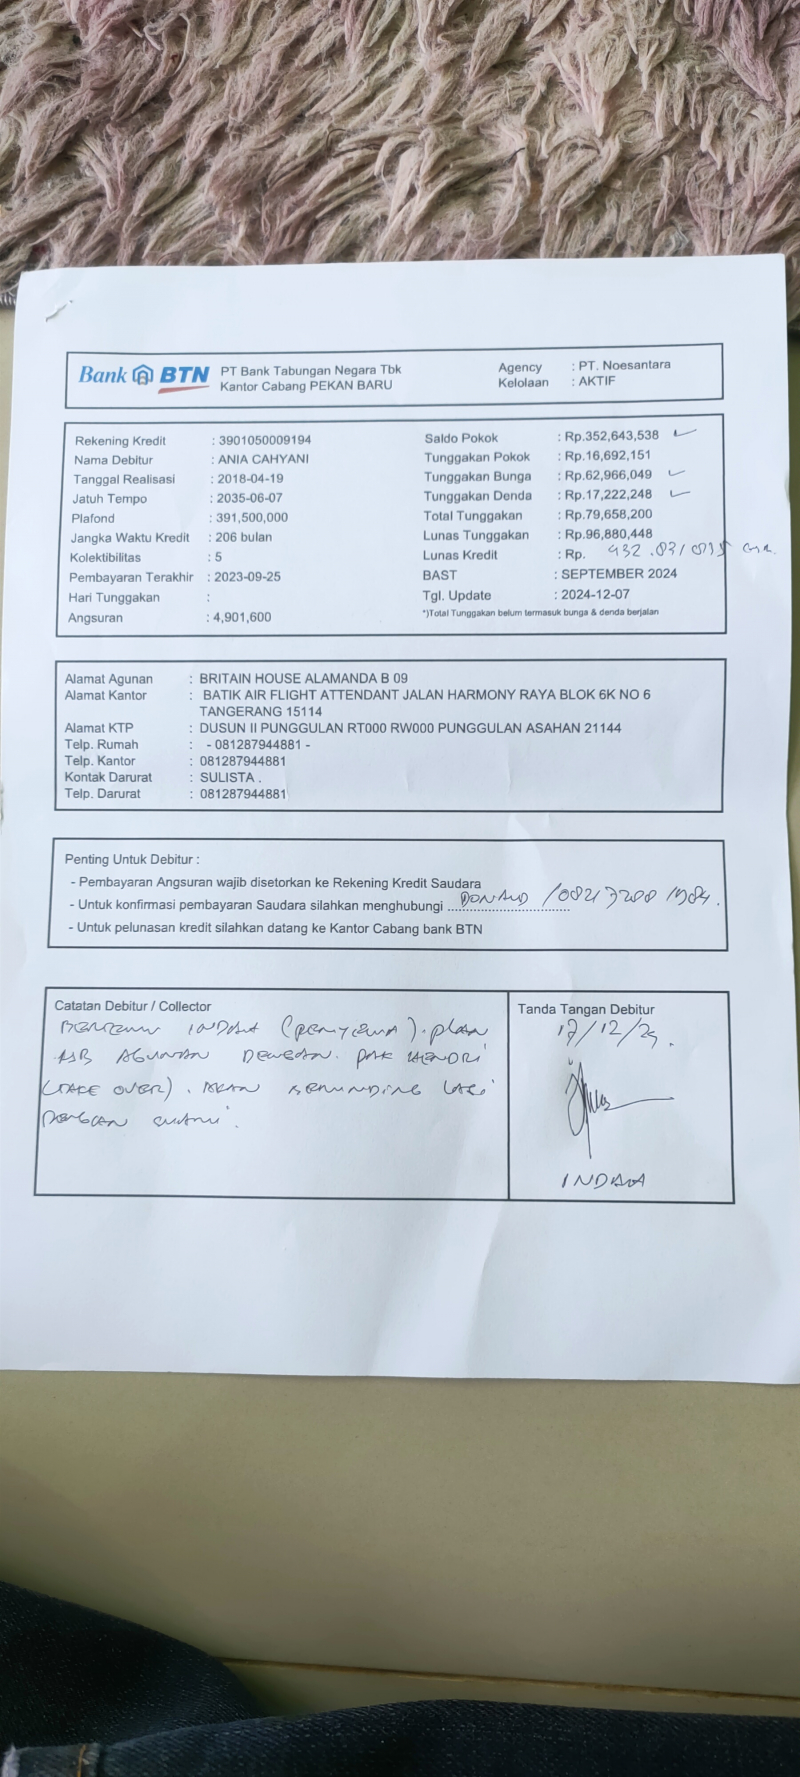 Bank BTN
PT Bank Tabungan Negara Tbk
Kantor Cabang PEKAN BARU
Agency : PT. Noesantara
Kelolaan : AKTIF
Rekening Kredit : 3901050009194
Nama Debitur : ANIA CAHYANI
Tanggal Realisasi : 2018-04-19
Jatuh Tempo : 2035-06-07
Plafond : 391,500,000
Jangka Waktu Kredit : 206 bulan
Kolektibilitas : 5
Pembayaran Terakhir : 2023-09-25
Hari Tunggakan :
Angsuran : 4,901,600
Saldo Pokok : Rp.352,643,538
Tunggakan Pokok : Rp.16,692,151
Tunggakan Bunga : Rp.62,966,049
Tunggakan Denda : Rp.17,222,248
Total Tunggakan : Rp.79,658,200
Lunas Tunggakan : Rp.96,880,448
Lunas Kredit : Rp.
BAST : SEPTEMBER 2024
Tgl. Update : 2024-12-07
*)Total Tunggakan belum termasuk bunga & denda berjalan
Alamat Agunan : BRITAIN HOUSE ALAMANDA B 09
Alamat Kantor : BATIK AIR FLIGHT ATTENDANT JALAN HARMONY RAYA BLOK 6K NO 6
TANGERANG 15114
Alamat KTP : DUSUN II PUNGGULAN RT000 RW000 PUNGGULAN ASAHAN 21144
Telp. Rumah : - 081287944881 -
Telp. Kantor : 081287944881
Kontak Darurat : SULISTA .
Telp. Darurat : 081287944881
Penting Untuk Debitur :
- Pembayaran Angsuran wajib disetorkan ke Rekening Kredit Saudara
- Untuk konfirmasi pembayaran Saudara silahkan menghubungi DONALD /
- Untuk pelunasan kredit silahkan datang ke Kantor Cabang bank BTN
Catatan Debitur / Collector
BERTEMU INDAH (PENYEWA). plan
AGUNAN DENGAN PAK HENDRI
(TAKE OVER). AKAN REMINDING LAGI
DENGAN SUAMI.
Tanda Tangan Debitur
17/12/24.
INDAH